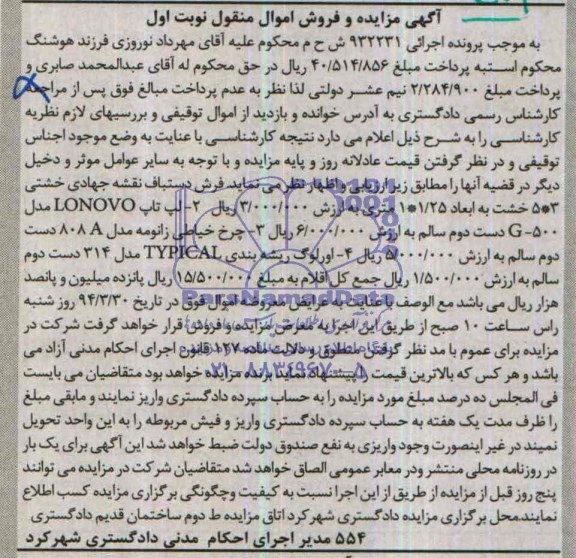 آگهی مزایده و فروش اموال منقول نوبت اول
به موجب پرونده اجرائی ۹۳۲۲۳۱ ش ح م محکوم علیه آقای مهرداد نوروزی فرزند هوشنگ
محکوم استبه پرداخت مبلغ ۴۰/۵۱۴/۸۵۶ ریال در حق محکوم له آقای عبدالمحمد صابری و
پرداخت مبلغ ۲/۲۸۴/۹۰۰ نیم عشر دولتی لذا نظر به عدم پرداخت مبالغ فوق پس از مراجعه
کارشناس رسمی دادگستری به آدرس خوانده و بازدید از اموال توقیفی و بررسیهای لازم نظریه
کارشناسی را به شرح ذیل اعلام می دارد نتیجه کارشناسی با عنایت به وضع موجود اجناس
توقیفی و در نظر گرفتن قیمت عادلانه روز و پایه مزایده و با توجه به سایر عوامل موثر و دخیل
دیگر در قضیه آنها را مطابق زیر ارزیابی و اظهار نظر می نماید. فرش دستباف نقشه جهادی خشتی
۳*۵ خشت به ابعاد ۱/۲۵*۱ متری به ارزش ۳/۰۰۰/۰۰۰ ریال ۲- لپ تاپ LONOVO مدل
G-۵۰۰ دست دوم سالم به ارزش ۶/۰۰۰/۰۰۰ ریال ۳- چرخ خیاطی زانومه مدل ۸۰۸ A دست
دوم سالم به ارزش ۵/۰۰۰/۰۰۰ ریال ۴- اورلوگ ریشه بندی TYPICAL مدل ۳۱۴ دست دوم
سالم به ارزش ۱/۵۰۰/۰۰۰ ریال جمع کل اقلام به مبلغ ۱۵/۵۰۰/۰۰۰ ریال پانزده میلیون و پانصد
هزار ریال می باشد مع الوصف با عنایت به مراتب معروضه اموال فوق در تاریخ ۹۴/۳/۳۰ روز شنبه
راس ساعت ۱۰ صبح از طریق این اجرا به معرض مزایده و فروش قرار خواهد گرفت شرکت در
مزایده برای عموم با مد نظر گرفتن منطوق و دلالت ماده ۱۲۷ قانون اجرای احکام مدنی آزاد می
باشد و هر کس که بالاترین قیمت را پیشنهاد نماید برنده مزایده خواهد بود متقاضیان می بایست
فی المجلس ده درصد مبلغ مورد مزایده را به حساب سپرده دادگستری واریز نمایند و مابقی مبلغ
را ظرف مدت یک هفته به حساب سپرده دادگستری واریز و فیش مربوطه را به این واحد تحویل
نمیند در غیر اینصورت وجود واریزی به نفع صندوق دولت ضبط خواهد شد این آگهی برای یک بار
در روزنامه محلی منتشر ودر معابر عمومی الصاق خواهد شد متقاضیان شرکت در مزایده می توانند
پنج روز قبل از مزایده از طریق از این اجرا نسبت به کیفیت وچگونگی برگزاری مزایده کسب اطلاع
نمایند.محل برگزاری مزایده دادگستری شهرکرد اتاق مزایده ط دوم ساختمان قدیم دادگستری
۵۵۴ مدیر اجرای احکام مدنی دادگستری شهرکرد
ParsNamadData
۰۲۱-۸۸۳۴۹۶۷۰-۵